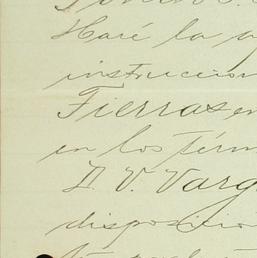 Haré la
instruccion
Tierras en
en los térm
D. V. Varg
disposicio